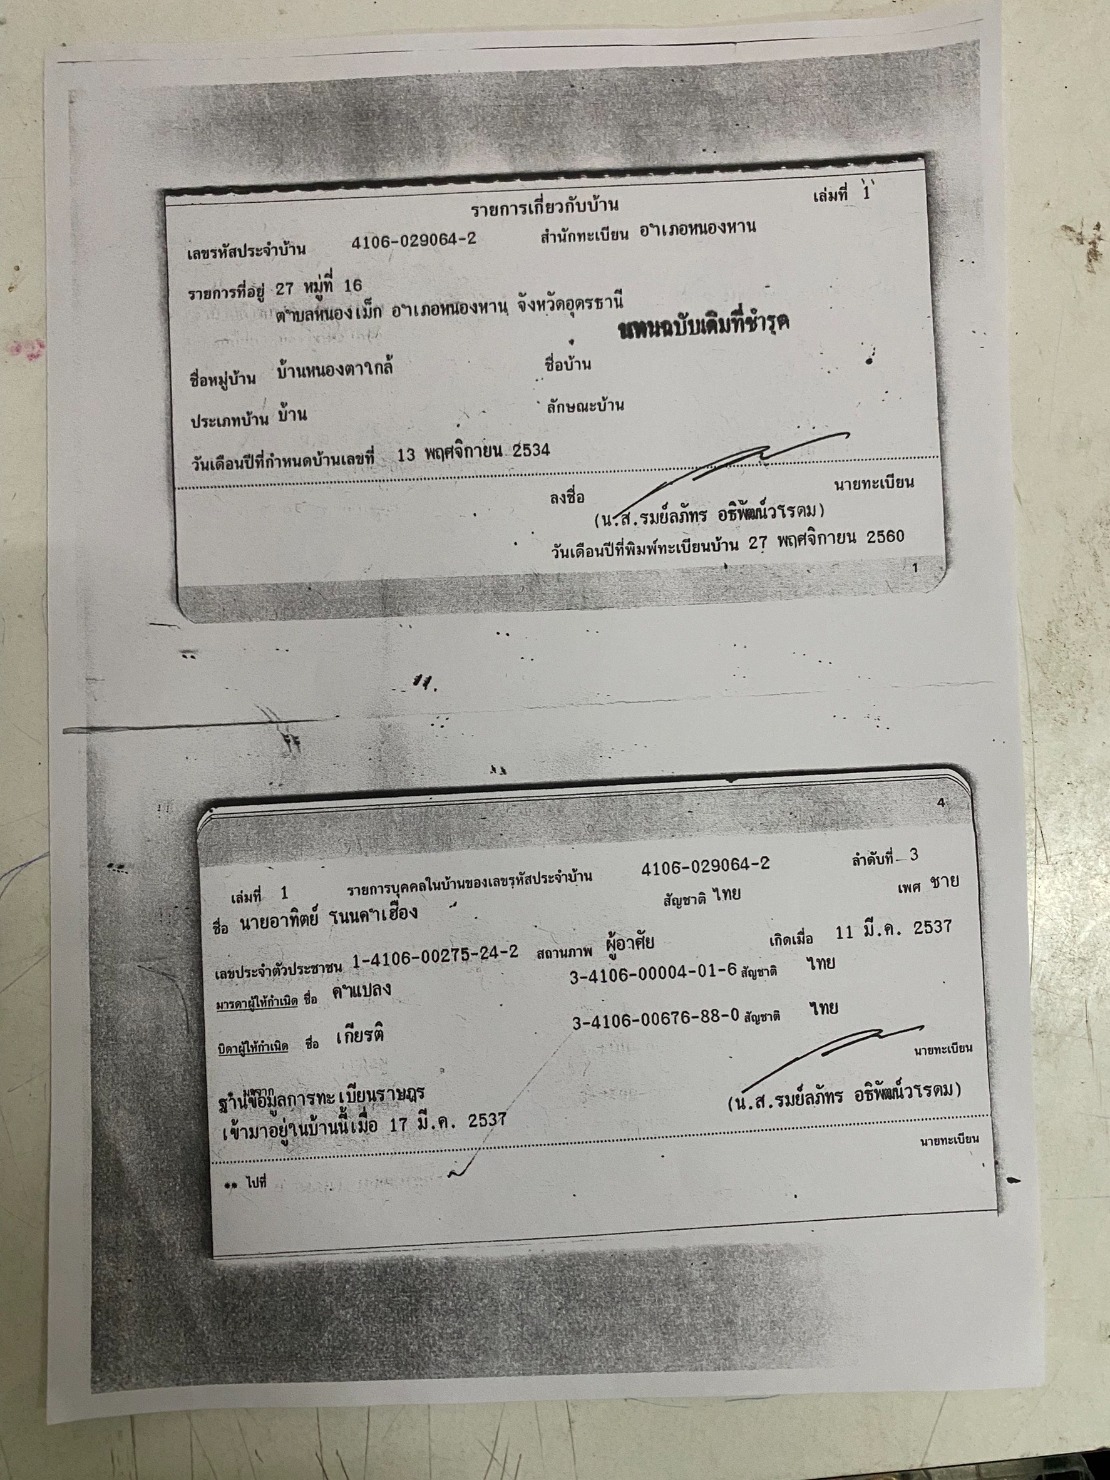 รายการเกี่ยวกับบ้าน เล่มที่ 1
เลขรหัสประจำบ้าน 4106-029064-2 สำนักทะเบียน อำเภอหนองหาน
รายการที่อยู่ 27 หมู่ที่ 16
ตำบลหนองเม็ก อำเภอหนองหาน จังหวัดอุดรธานี
แทนฉบับเดิมที่ชำรุด
ชื่อหมู่บ้าน บ้านหนองตาใกล้ ชื่อบ้าน
ประเภทบ้าน บ้าน ลักษณะบ้าน
วันเดือนปีที่กำหนดบ้านเลขที่ 13 พฤศจิกายน 2534
ลงชื่อ นายทะเบียน
(น.ส.รมย์ลภัทร อธิพัฒน์วโรดม)
วันเดือนปีที่พิมพ์ทะเบียนบ้าน 27 พฤศจิกายน 2560
1
4
เล่มที่ 1 รายการบุคคลในบ้านของเลขรหัสประจำบ้าน 4106-029064-2 ลำดับที่ 3
ชื่อ นายอาทิตย์ โนนคำเฮือง สัญชาติ ไทย เพศ ชาย
เลขประจำตัวประชาชน 1-4106-00275-24-2 สถานภาพ ผู้อาศัย เกิดเมื่อ 11 มี.ค. 2537
มารดาผู้ให้กำเนิด ชื่อ คำแปลง 3-4106-00004-01-6 สัญชาติ ไทย
บิดาผู้ให้กำเนิด ชื่อ เกียรติ 3-4106-00676-88-0 สัญชาติ ไทย
นายทะเบียน
ฐานข้อมูลการทะเบียนราษฎร
(น.ส.รมย์ลภัทร อธิพัฒน์วโรดม)
เข้ามาอยู่ในบ้านนี้เมื่อ 17 มี.ค. 2537
นายทะเบียน
** ไปที่